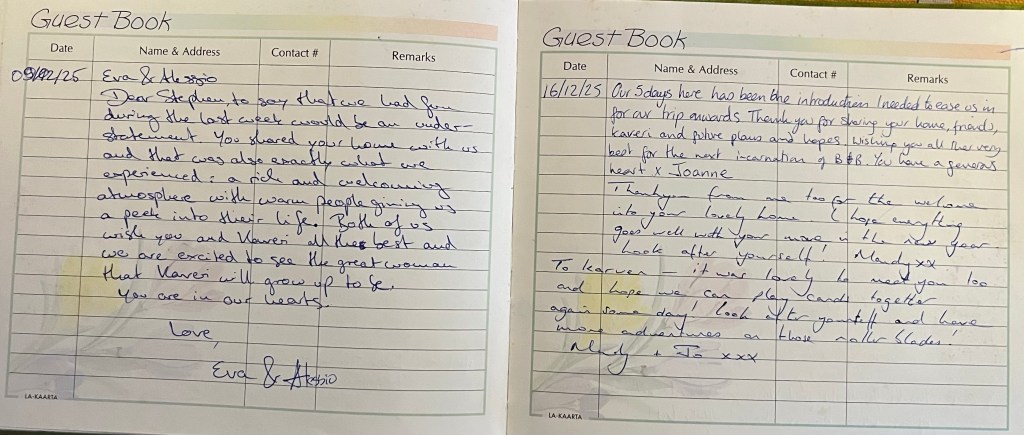 Guest Book
Date Name & Address Contact # Remarks
09/12/25 Eva & Alessio
Dear Stephen, to say that we had fun
during the last week would be an under-
statement. You shared your home with us
and that was also exactly what we
experienced: a rich and welcoming
atmosphere with warm people giving us
a peek into their life. Both of us
wish you and Kaveri all the best and
we are excited to see the great woman
that Kaveri will grow up to be.
You are in our hearts.
Love,
Eva & Alessio
LA-KAARTA
Guest Book
Date Name & Address Contact # Remarks
16/12/25 Our 5 days here has been the introduction I needed to ease us in
for our trip onwards. Thank you for sharing your home, friends,
kaveri and future plans and hopes. Wishing you all the very
best for the next incarnation of B&B. You have a generous
heart x Joanne
Thankyou from me too for the welcome
into your lovely home. I hope everything
goes well with your move in the new year.
Look after yourself! Mandy xx
To Karveri – it was lovely to meet you too
and hope we can play cards together
again some day! Look after yourself and have
more adventures on those roller blades!
Mandy + Jo xxx
LA-KAARTA